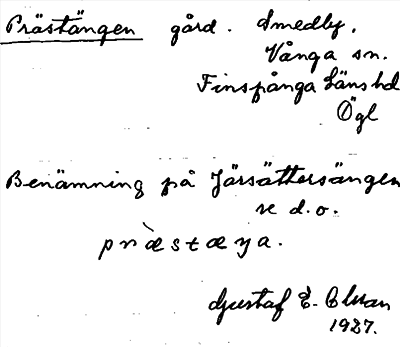 Prästängen gård. Smedby,
Vånga sn.
Finspånga läns hd
Ögl
Benämning på Järsättersängen
se d.o.
præ̀stæŋa.
Gustaf E. Olsson
1927.